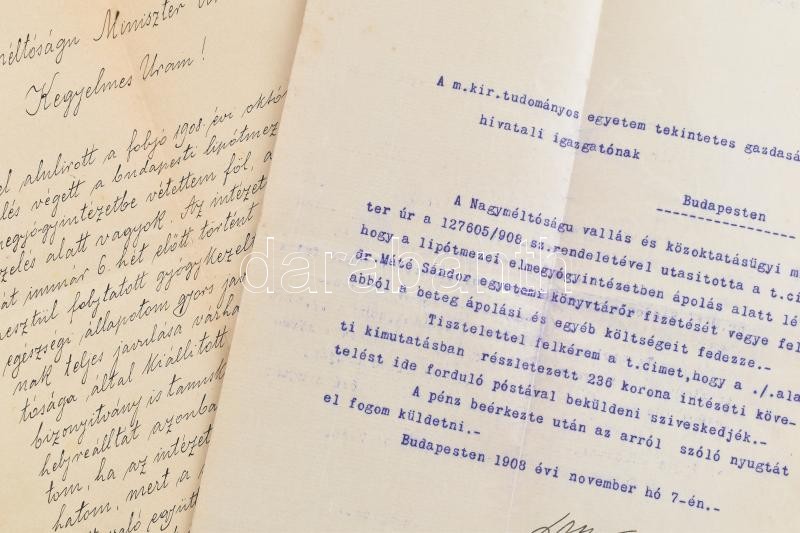 Kegyelmes Uram!
alulirott a folyó 1908. évi
végett a budapesti
vétettem föl, a
alatt vagyok. Az
immár 6. hét előtt történt
folytatott gyógykezel
egészségi állapotom gyors jav
nak teljes javulása várha
tósága által kiállított
bizonyitvány is tanusi
helyreálltát azonba
tom, ha az intézet
hatom, mert a
együtt
A m.kir.tudományos egyetem tekintetes gazdasá
hivatali igazgatónak
Budapesten
A Nagyméltóságu vallás és közoktatásügyi m
ter úr a 127605/908 sz.rendeletével utasitotta a t.ci
hogy a lipótmezei elmegyógyintézetben ápolás alatt lé
dr.Máté Sándor egyetemi könyvtárőr fizetését vegye fel
abból a beteg ápolási és egyéb költségeit fedezze.-
Tisztelettel felkérem a t.cimet,hogy a ./.ala
ti kimutatásban részletezett 236 korona intézeti köve-
telést ide forduló póstával beküldeni sziveskedjék.-
A pénz beérkezte után az arról szóló nyugtát
el fogom küldetni.-
Budapesten 1908 évi november hó 7-én.-
darabanth